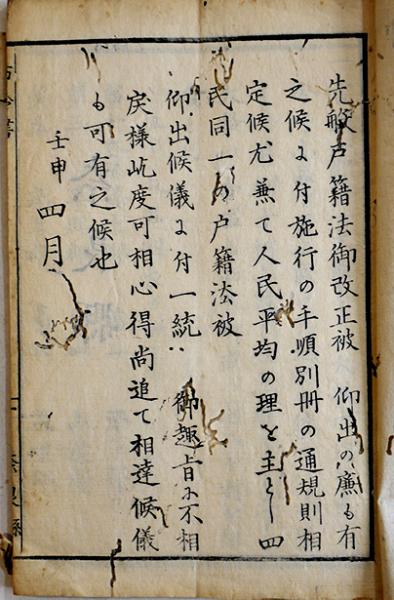 先般戸籍法御改正被　仰出の廉も有
之候ニ付施行の手順別冊の通規則相
定候尤兼て人民平均の理を主とし四
民同一の戸籍法被
仰出候儀ニ付一統　御趣旨ニ不相
戻様屹度可相心得尚追て相達候儀
も可有之候也
壬申四月